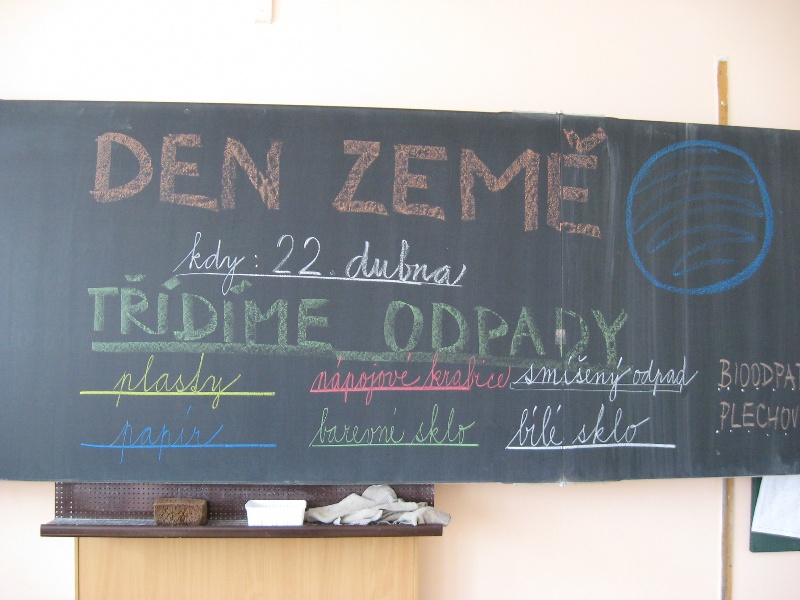 DEN ZEMĚ
kdy: 22. dubna
TŘÍDÍME ODPADY
plasty nápojové krabice smíšený odpad BIOODPA
papír barevné sklo bílé sklo PLECHOV